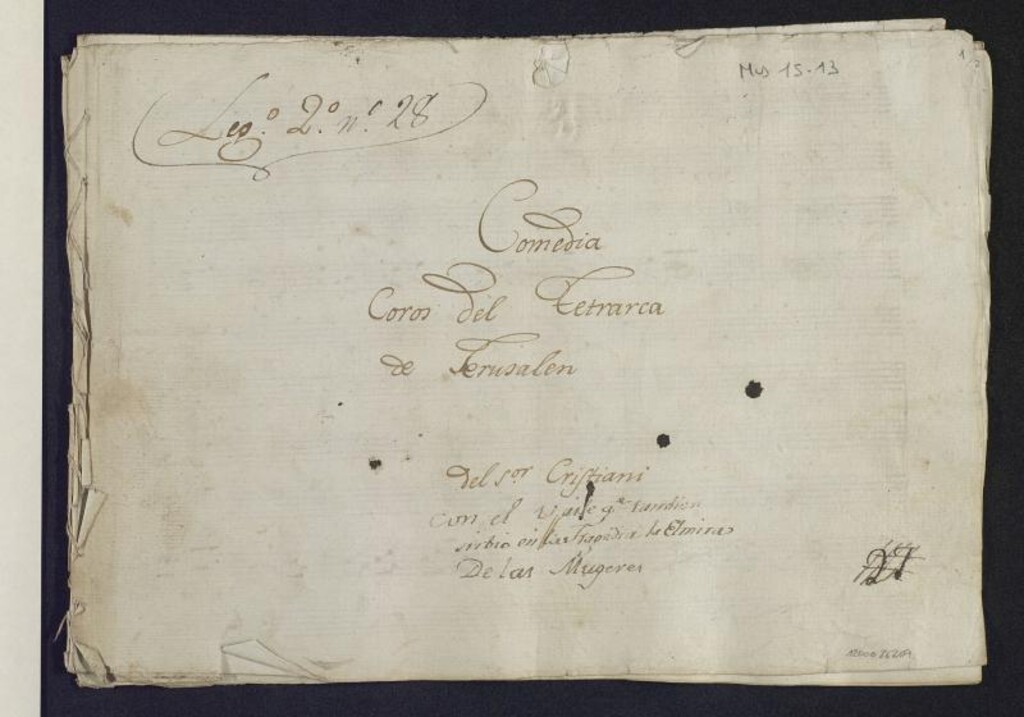 Mus 15-13
Leg.º 2.º n.º 28
Comedia
Coros del Tetrarca
de Jerusalen
del s.or Cristiani
con el Vaile q.e tambien
sirbio en la Tragedia la Elmira
De las Mugeres